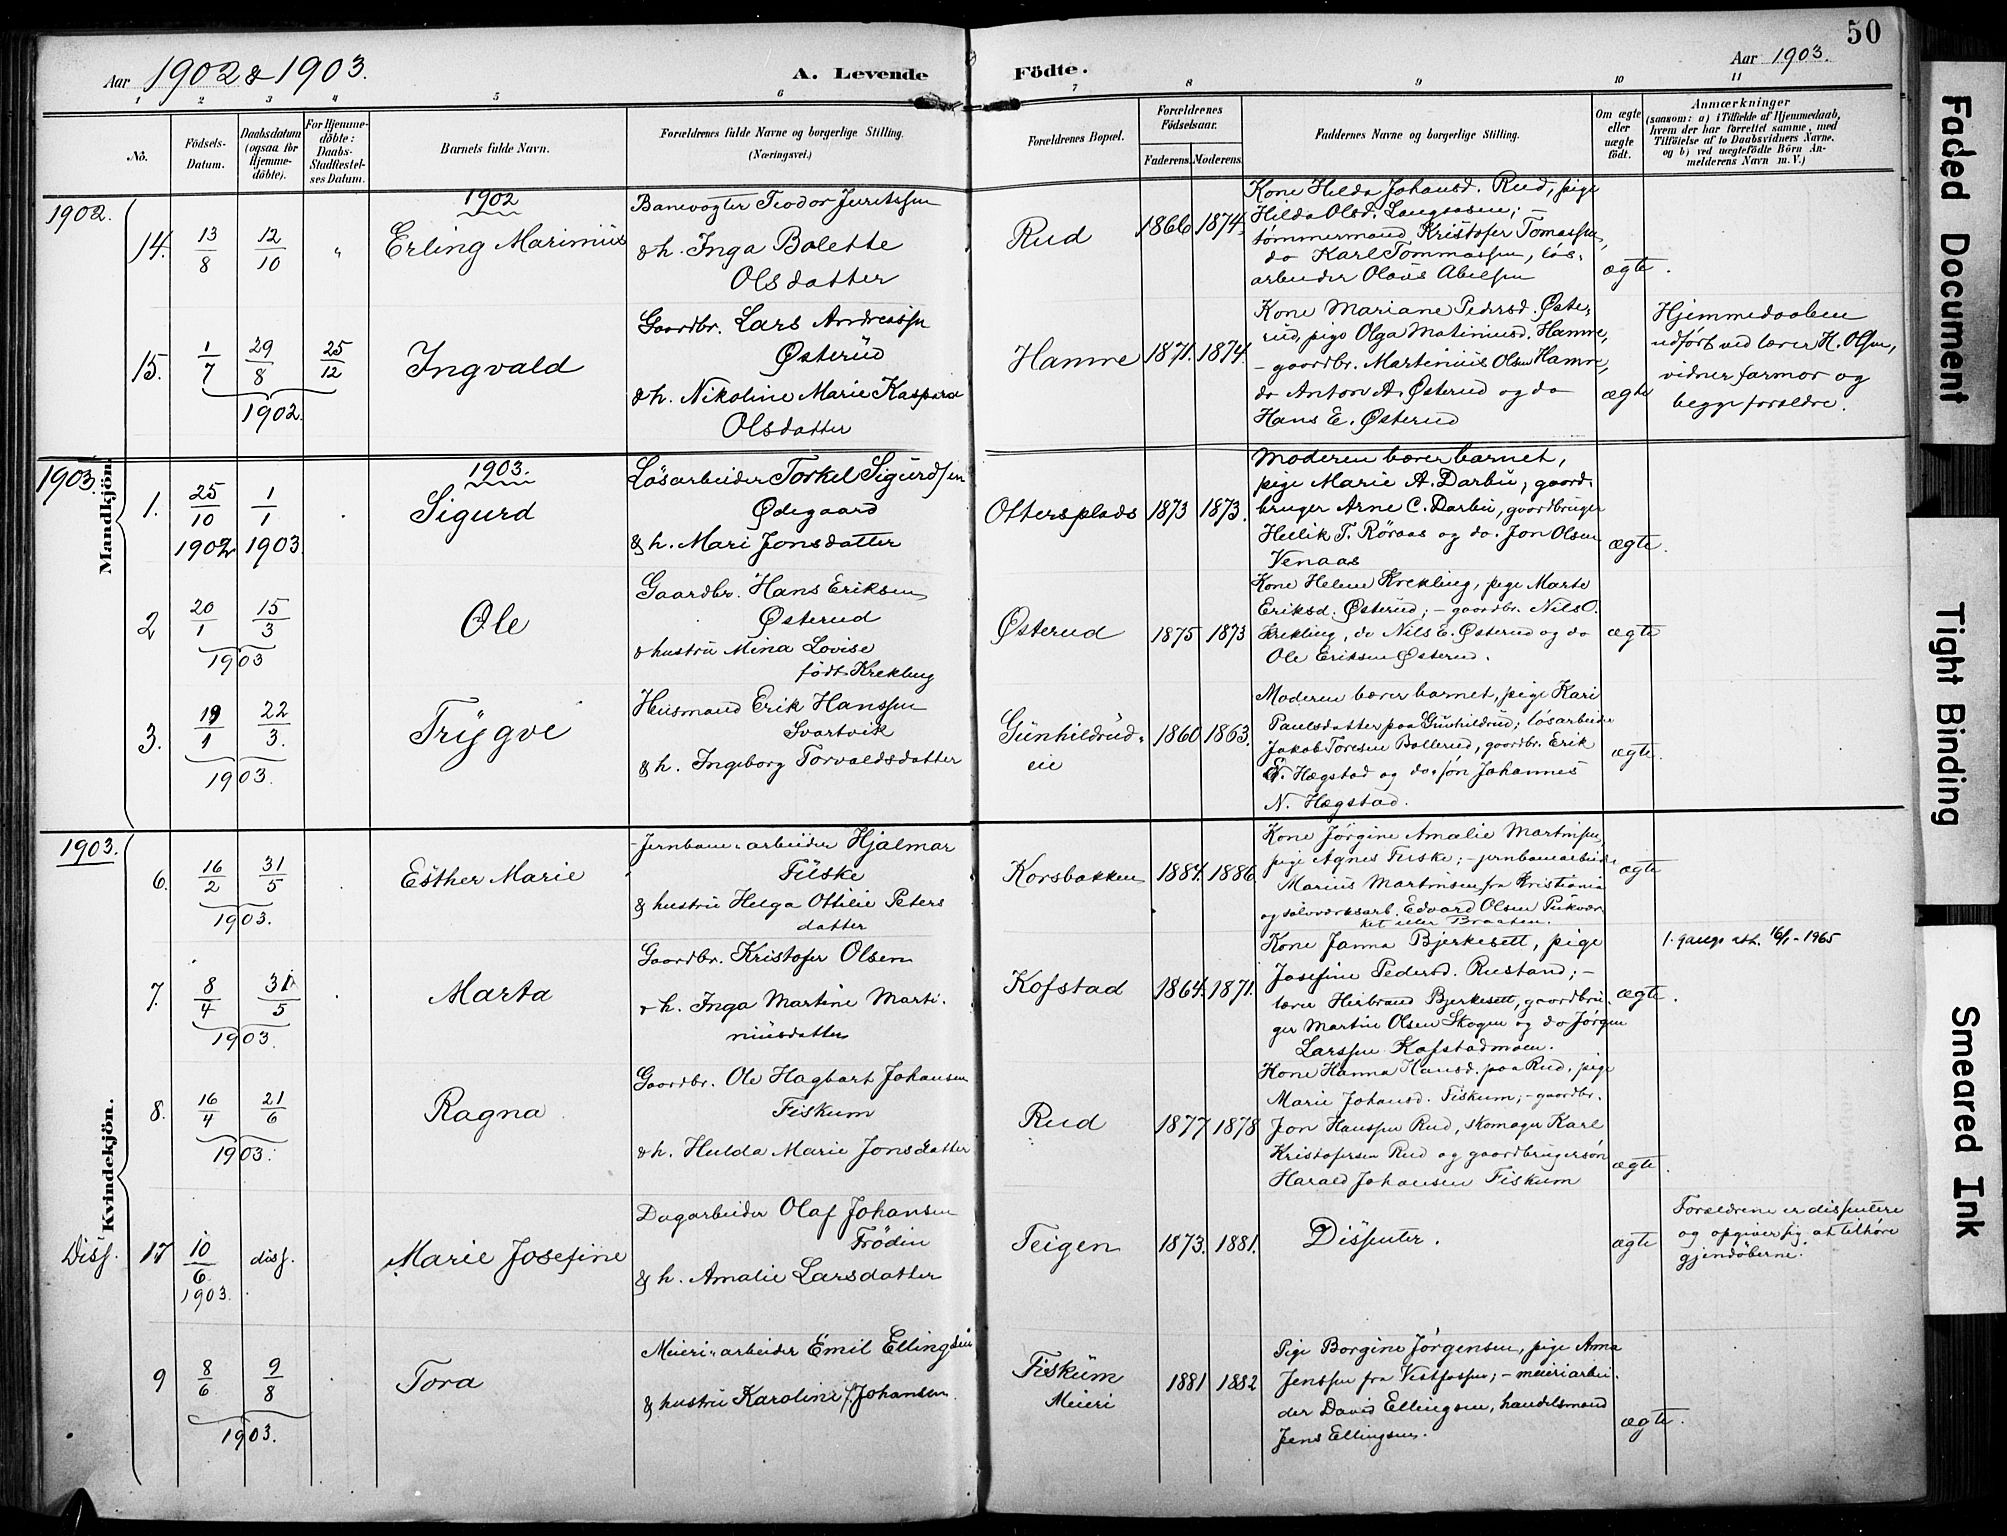 50
Aar 1902 & 1903.
A. Levende Födte.
Aar 1903.
1 2 3 4 5 6 7 8 9 10 11
No.
Födsels-
Datum.
Daabsdatum
(ogsaa for
Hjemme-
döbte).
For Hjemme-
döbte:
Daabs-
Stadfæstel-
ses Datum.
Barnets fulde Navn.
Forældrenes fulde Navne og borgerlige Stilling.
(Næringsvei.)
Forældrenes Bopæl.
Forældrenes
Födselsaar.
Faderens. Moderens.
Faddernes Navne og borgerlige Stilling.
Om ægte
eller
uægte
født.
Anmærkninger
(saasom: a) i Tilfælde af Hjemmedaab,
hvem der har forrettet samme, med
Tilföielse af to Daabsvidners Navne.
og b) ved uægtefödte Börn An-
melderens Navn m. V.)
1902.
Mandkjön.
14.
13/8
12/10
"
1902
Erling Marinius
Banevogter Teodor Juritssen
& h. Inga Bolette
Olsdatter
Rud
1866
1874.
Kone Hilda Johansd. Rud, pige
Hilda Olsd. Langaasen; –
tømmermand Kristofer Tomassen,
do Karl Tommassen, løs-
arbeider Olaus Abelsen
ægte.
15.
1/7
29/8
25/12
1902.
Ingvald
Gaardbr. Lars Andreassen
Østerud
& h. Nikoline Marie Kaspara
Olsdatter
Hamre
1871.
1874.
Kone Mariane Pedersd. Øste-
rud, pige Olga Matiniusd. Hamre,
– gaardbr. Martinius Olsen Hamre,
do Anton A. Østerud og do
Hans E. Østerud
ægte
Hjemmedaaben
udført ved lærer H. Olsen,
vidner farmor og
begge forældre.
1903.
1.
25/10
1902
1/1
1903.
1903.
Sigurd
Løsarbeider Torkel Sigurdsen
Ødegaard
& h. Mari Jonsdatter
Ottersplads
1873
1873.
Moderen bærer barnet,
pige Marie A. Darbu, gaard-
bruger Arne C. Darbu, gaardbruger
Heilik T. Røraas og do. Jon Olsen
Venaas
ægte.
2
20/1
15/3
1903
Ole
Gaardbr. Hans Eriksen
Østerud
& hustru Mina Lovise
født Krekling
Østerud
1875
1873
Kone Helene Krekling, pige Marte
Eriksd. Østerud; – gaardbr. Nils O.
Krekling, do Nils E. Østerud og do
Ole Eriksen Østerud.
ægte
3.
19/1
22/3.
1903.
Trygve
Husmand Erik Hanssen
Svartvik
& h. Ingeborg Torvaldsdatter
Gunhildrud-
eie
1860
1863.
Moderen bærer barnet, pige Kari
Paulsdatter paa Gunhildrud; løsarbeider
Jakob Toresen Bollerud, gaardbr. Erik
N. Hægstad og do. søn Johannes
N. Hægstad.
ægte.
1903.
Kvindekjön.
6.
16/2
31/5
1903.
Esther Marie
Jernbane-arbeider Hjalmar
Fuske
& hustru Helga Otilie Peters
datter
Korsbakken
1884.
1886.
Kone Jørgine Amalie Martinsen,
pige Agnes Fuske; – jernbanearbeider
Marius Martinsen fra Kristiania
og sølvværksarb. Edvard Olsen
eller Braaten.
ægte
7.
8/4
31/5
1903.
Marta
Gaardbr. Kristofer Olsen
& h. Inga Martine Marti-
niusdatter
Kofstad
1864.
1871.
Kone Janna Bjerkesett, pige
Josefine Pedersd. Rustand; –
lærer Herbrand Bjerkesett, gaardbru-
ger Martin Olsen Skogen og do Jørgen
Larssen Kofstadmoen.
ægte.
1. gangs att. 16/1-1965
8.
16/4
21/6
1903.
Ragna
Gaardbr. Ole Hagbart Johansen
Fiskum
& h. Hulda Marie Jonsdatter
Rud
1877
1878
Kone Hanna Hansd. paa Rud, pige
Marie Johansd. Fiskum; – gaardbr.
Jon Hanssen Rud, skomager Karl
Kristofersen Rud og gaardbrugersøn
Harald Johansen Fiskum
ægte.
Diss.
17
10/6
1903.
diss.
Marie Josefine
Dagarbeider Olaf Johansen
Frödin
& h. Amalie Larsdatter
Teigen
1873.
1881.
Dissenter.
ægte
Forældrene er dissentere
og opgiver sig at tilhøre
gjendöberne.
9
8/6
9/8
1903.
Tora
Meieri-arbeider Emil Ellingsen
& hustru Karoline f. Johansen.
Fiskum
Meieri
1881
1882
Pige Borgine Jørgensen, pige Anna
Jenssen fra Vestfossen; – meieriarbei-
der David Ellingsen, handelsmand
Jens Ellingsen.
ægte.
Faded Document
Tight Binding
Smeared Ink